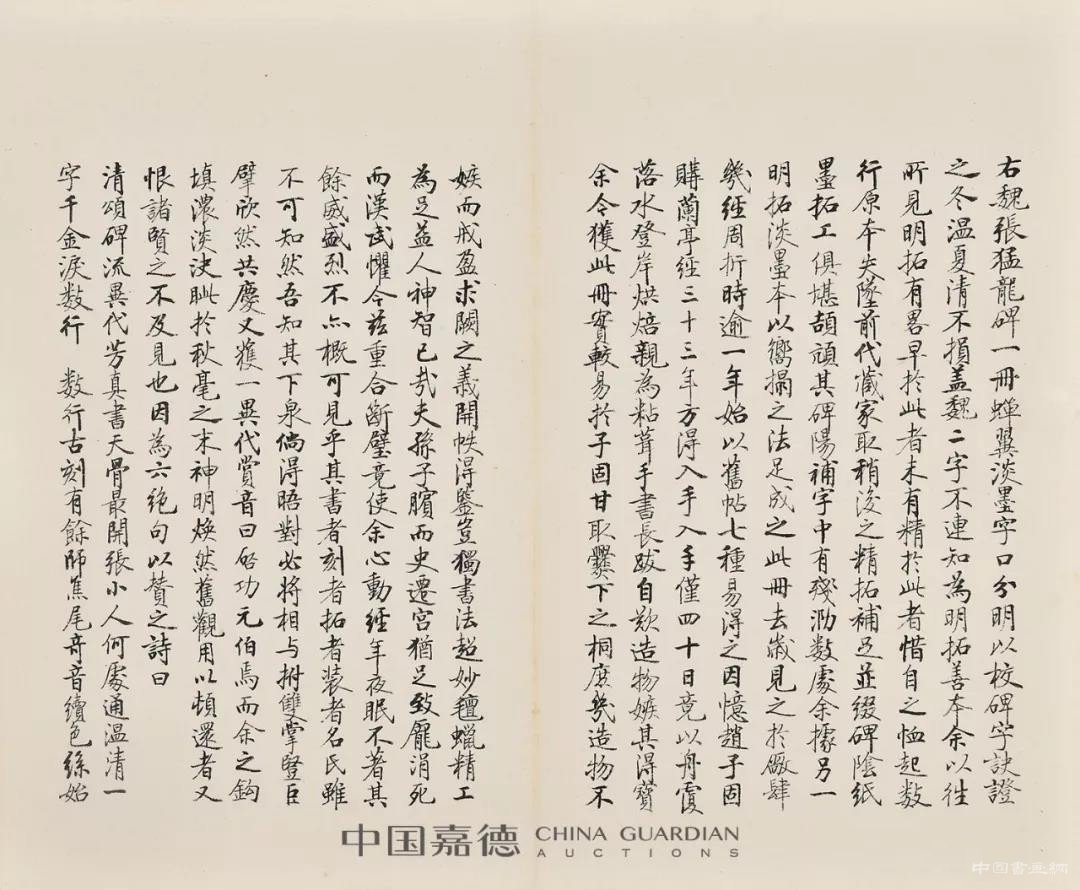 右魏張猛龍碑一冊蟬翼淡墨字口分明以校碑字訣證
之冬温夏清不損盖魏二字不連知為明拓善本余以往
所見明拓有畧早於此者未有精於此者惜自之恤起数
行原本失墜前代藏家取稍後之精拓補足並綴碑陰紙
墨拓工俱堪頡頏其碑陽補字中有殘泐数處余據另一
明拓淡墨本以嚮搨之法足成之此冊去嵗見之於廠肆
幾經周折時逾一年始以舊帖七種易得之因憶趙子固
購蘭亭經三十三年方得入手入手僅四十日竟以舟覆
落水登岸烘焙親為粘葺手書長跋自歎造物嫉其得寶
余今獲此冊實較易於子固甘取爨下之桐庶幾造物不
嫉而戒盈求闕之義開帙得鑒豈獨書法超妙氊蠟精工
為足益人神智已哉夫孫子臏而史遷宮猶足致龐涓死
而漢武懼今茲重合斷璧竟使余心動經年夜眠不著其
餘威盛烈不亦概可見乎其書者刻者拓者装者名氏雖
不可知然吾知其下泉倘得晤對必將相与拊雙掌豎巨
擘欣然共慶又獲一異代賞音曰啓功元伯焉而余之鈎
填濃淡決眦於秋毫之末神明焕然舊觀用以頓還者又
恨諸賢之不及見也因為六絶句以賛之詩曰
清頌碑流異代芳真書天骨最開張小人何處通温清一
字千金淚数行 数行古刻有餘師焦尾奇音續色絲始
中国嘉德 CHINA GUARDIAN AUCTIONS
中国书画网